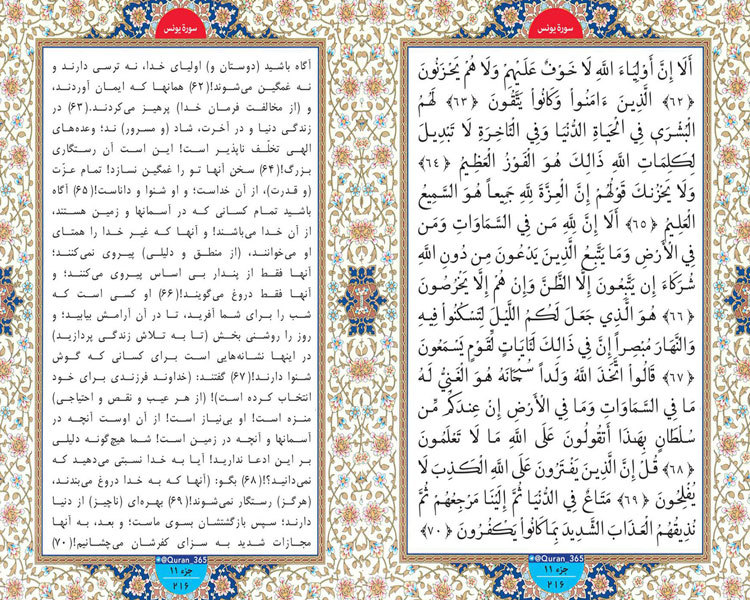 سورة یونس
أَلَا إِنَّ أَوْلِيَاءَ اللَّهِ لَا خَوْفٌ عَلَيْهِمْ وَلَا هُمْ يَحْزَنُونَ
﴿٦٢﴾ الَّذِينَ ءَامَنُواْ وَكَانُواْ يَتَّقُونَ ﴿٦٣﴾ لَهُمُ
الْبُشْرَىٰ فِي الْحَيَاةِ الدُّنْيَا وَفِي الْآخِرَةِ لَا تَبْدِيلَ
لِكَلِمَاتِ اللَّهِ ذَالِكَ هُوَ الْفَوْزُ الْعَظِيمُ ﴿٦٤﴾
وَلَا يَحْزُنكَ قَوْلُهُمْ إِنَّ الْعِزَّةَ لِلَّهِ جَمِيعاً هُوَ السَّمِيعُ
الْعَلِيمُ ﴿٦٥﴾ أَلَا إِنَّ لِلَّهِ مَن فِي السَّمَاوَاتِ وَمَن
فِي الْأَرْضِ وَمَا يَتَّبِعُ الَّذِينَ يَدْعُونَ مِن دُونِ اللَّهِ
شُرَكَاءَ إِن يَتَّبِعُونَ إِلَّا الظَّنَّ وَإِنْ هُمْ إِلَّا يَخْرُصُونَ
﴿٦٦﴾ هُوَ الَّذِي جَعَلَ لَكُمُ اللَّيْلَ لِتَسْكُنُواْ فِيهِ
وَالنَّهَارَ مُبْصِراً إِنَّ فِي ذَالِكَ لَآيَاتٍ لِّقَوْمٍ يَسْمَعُونَ
﴿٦٧﴾ قَالُواْ اتَّخَذَ اللَّهُ وَلَداً سُبْحَانَهُ هُوَ الْغَنِيُّ لَهُ
مَا فِي السَّمَاوَاتِ وَمَا فِي الْأَرْضِ إِنْ عِندَكُم مِّن
سُلْطَانٍ بِهَٰذَا أَتَقُولُونَ عَلَى اللَّهِ مَا لَا تَعْلَمُونَ
﴿٦٨﴾ قُلْ إِنَّ الَّذِينَ يَفْتَرُونَ عَلَى اللَّهِ الْكَذِبَ لَا
يُفْلِحُونَ ﴿٦٩﴾ مَتَاعٌ فِي الدُّنْيَا ثُمَّ إِلَيْنَا مَرْجِعُهُمْ ثُمَّ
نُذِيقُهُمُ الْعَذَابَ الشَّدِيدَ بِمَا كَانُواْ يَكْفُرُونَ ﴿٧٠﴾
@Quran_365
جزء ۱۱
۲۱۶
سورة یونس
آگاه باشید (دوستان و) اولیای خدا، نه ترسی دارند و
نه غمگین می‌شوند!(۶۲) همانها که ایمان آوردند،
و (از مخالفت فرمان خدا) پرهیز می‌کردند.(۶۳) در
زندگی دنیا و در آخرت، شاد (و مسرور) ند؛ وعده‌های
الهی تخلّف ناپذیر است! این است آن رستگاری
بزرگ!(۶۴) سخن آنها تو را غمگین نسازد! تمام عزّت
(و قدرت)، از آن خداست؛ و او شنوا و داناست!(۶۵) آگاه
باشید تمام کسانی که در آسمانها و زمین هستند،
از آن خدا می‌باشند! و آنها که غیر خدا را همتای
او می‌خوانند، (از منطق و دلیلی) پیروی نمی‌کنند؛
آنها فقط از پندار بی اساس پیروی می‌کنند؛ و
آنها فقط دروغ می‌گویند!(۶۶) او کسی است که
شب را برای شما آفرید، تا در آن آرامش بیابید؛ و
روز را روشنی بخش (تا به تلاش زندگی پردازید)
در اینها نشانه‌هایی است برای کسانی که گوش
شنوا دارند!(۶۷) گفتند: (خداوند فرزندی برای خود
انتخاب کرده است)! (از هر عیب و نقص و احتیاجی)
منزه است! او بی‌نیاز است! از آن اوست آنچه در
آسمانها و آنچه در زمین است! شما هیچ‌گونه دلیلی
بر این ادعا ندارید! آیا به خدا نسبتی می‌دهید که
نمی‌دانید؟!(۶۸) بگو: (آنها که به خدا دروغ می‌بندند،
(هرگز) رستگار نمی‌شوند!(۶۹) بهره‌ای (ناچیز) از دنیا
دارند؛ سپس بازگشتشان بسوی ماست؛ و بعد، به آنها
مجازات شدید به سزای کفرشان می‌چشانیم!(۷۰)
@Quran_365
جزء ۱۱
۲۱۶